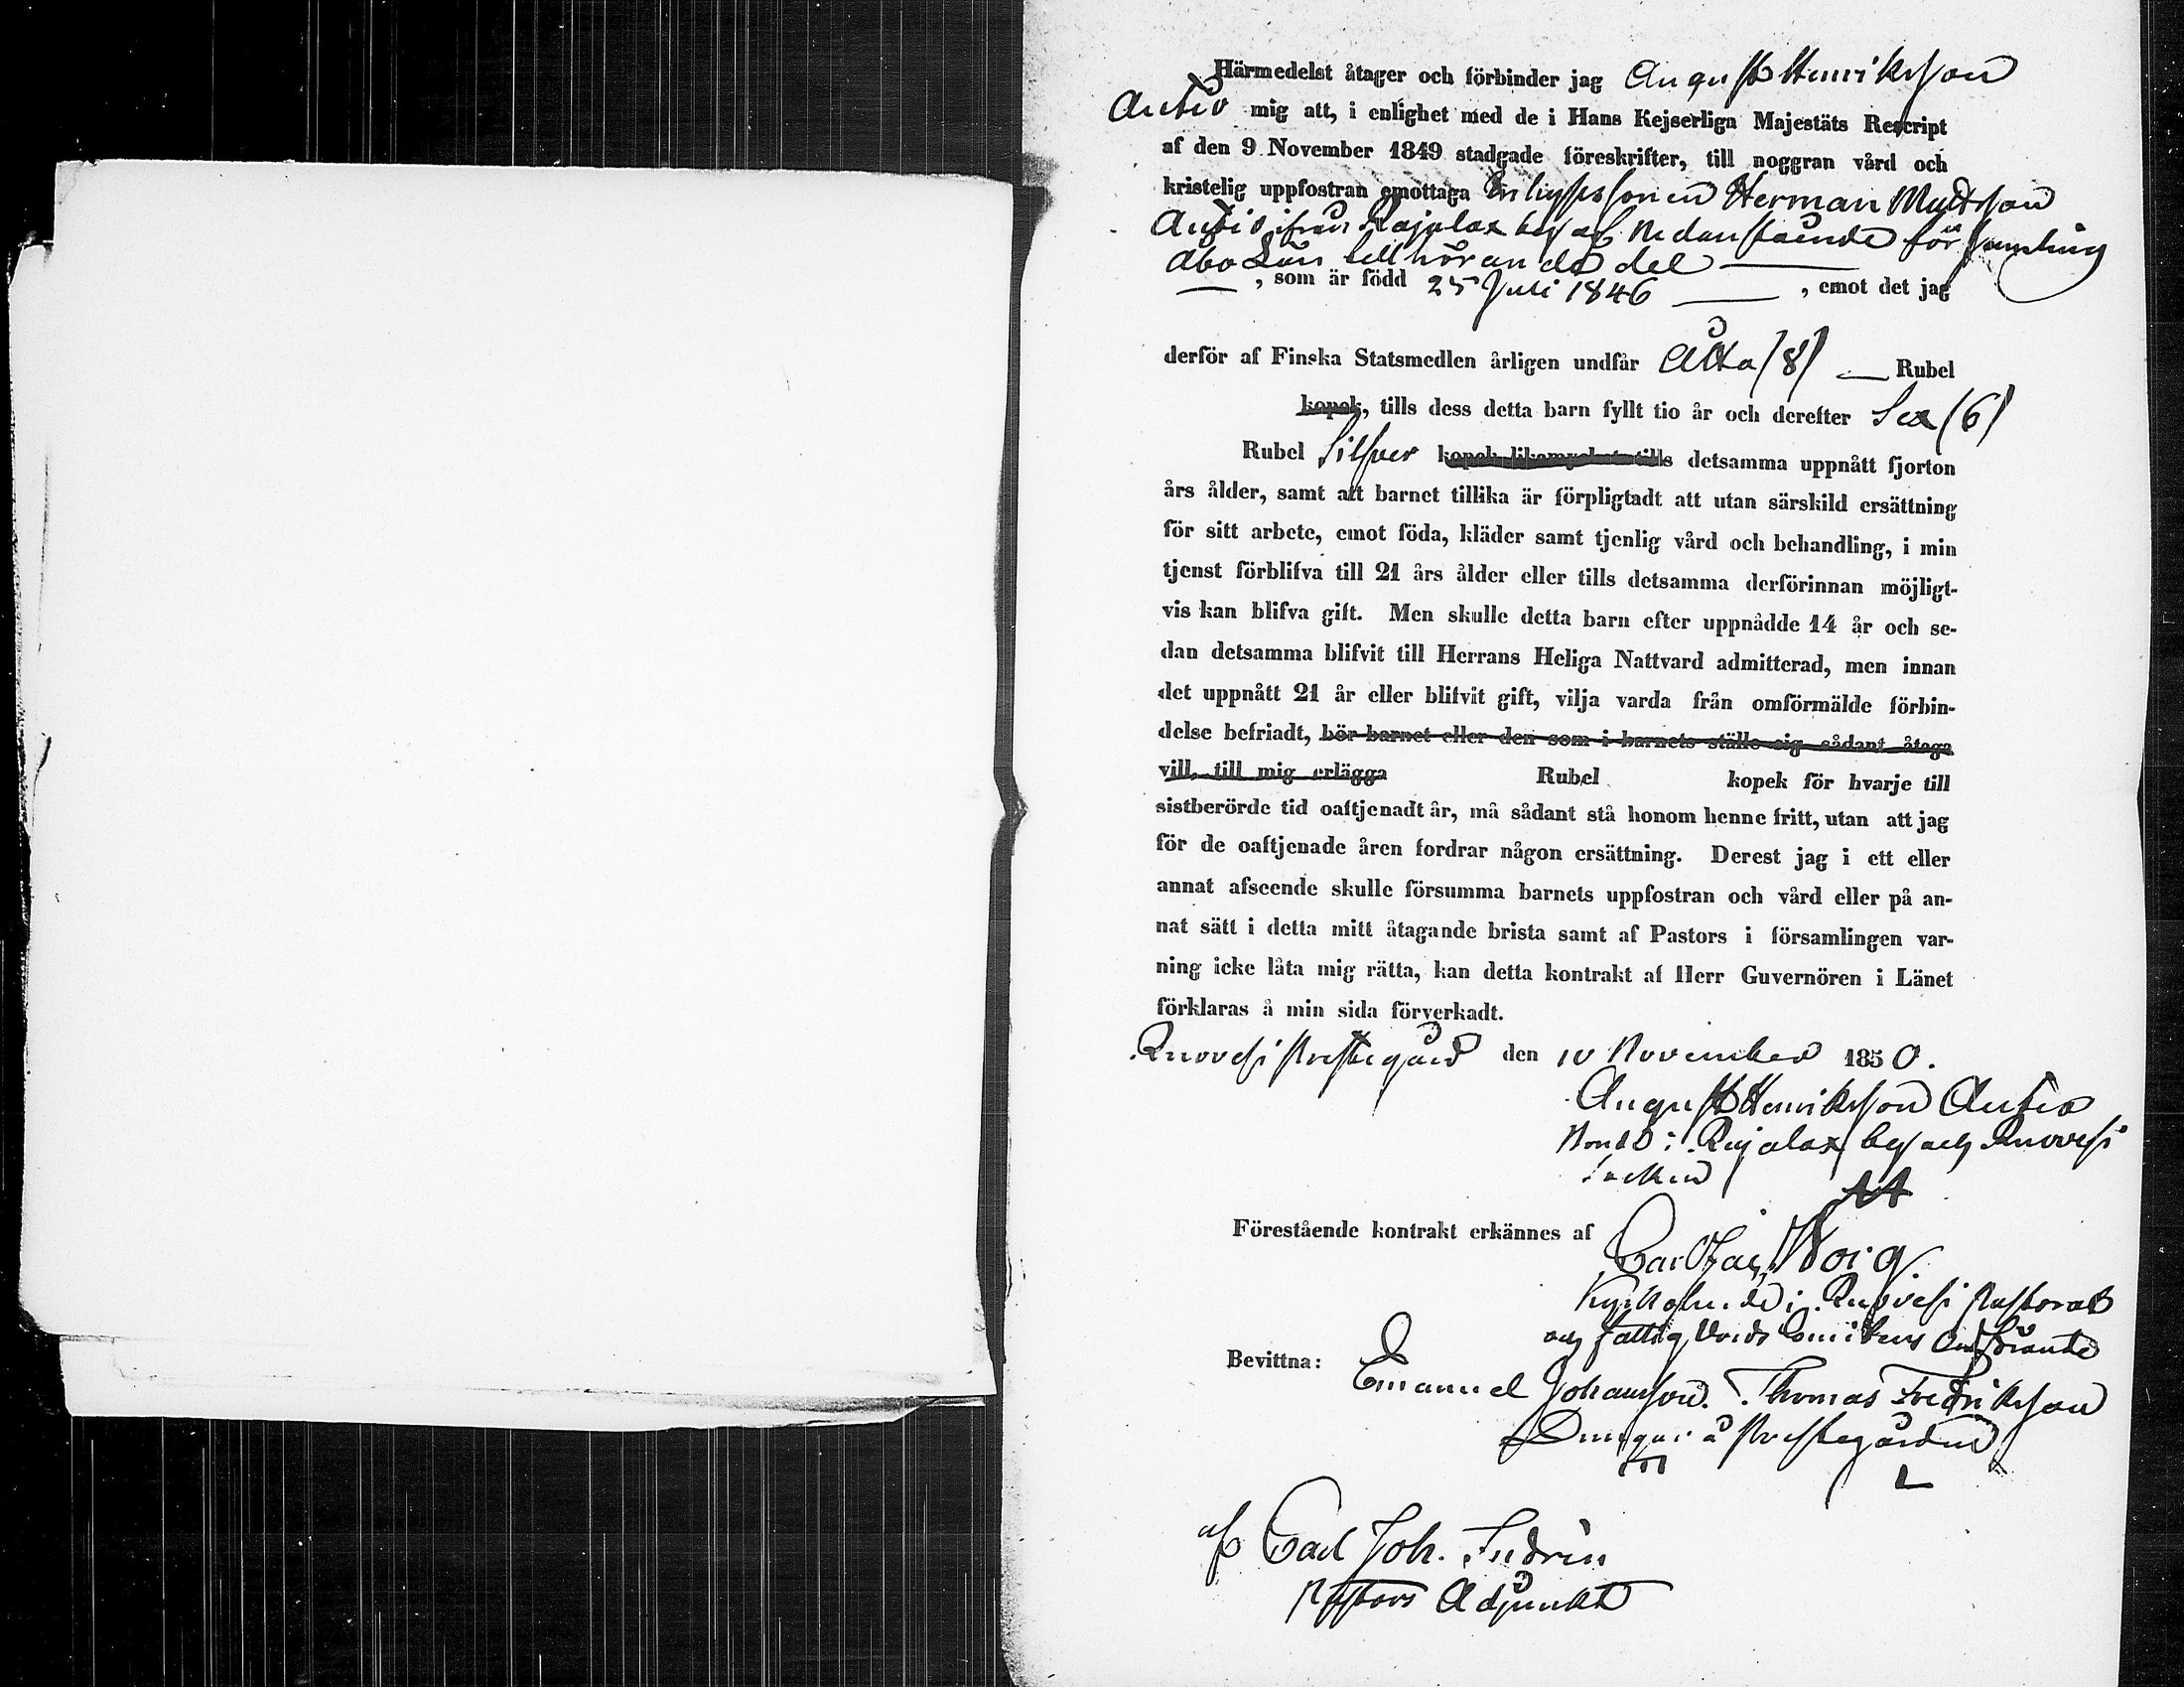 Härmedelst åtager och förbinder jag August Henriksson
Antio mig att, i enlighet med de i Hans Kejserliga Majestäts Rescript
af den 9 November 1849 stadgade föreskrifter, till noggran vård och
kristelig uppfostran emottaga Herman Mattsson
Antio ifrån Rajalax by af nedanstående församling
Åbo Län tillhörande del
, som är född 25 Juli 1846 , emot det jag
derför af Finska Statsmedlen årligen undfår Åtta (8) Rubel
kopek, tills dess detta barn fyllt tio år och derefter Sex (6)
Rubel Silfver kopek likamycket tills detsamma uppnått fjorton
års ålder, samt att barnet tillika är förpligtadt att utan särskild ersättning
för sitt arbete, emot föda, kläder samt tjenlig vård och behandling, i min
tjenst förblifva till 21 års ålder eller tills detsamma derförinnan möjligt-
vis kan blifva gift. Men skulle detta barn efter uppnådde 14 år och se-
dan detsamma blifvit till Herrans Heliga Nattvard admitterad, men innan
det uppnått 21 år eller blifvit gift, vilja varda från omförmälde förbin-
delse befriadt, bör barnet eller den som i barnets ställe sig sådant åtaga
vill, till mig erlägga Rubel kopek för hvarje till
sistberörde tid oaftjenadt år, må sådant stå honom henne fritt, utan att jag
för de oaftjenade åren fordrar någon ersättning. Derest jag i ett eller
annat afseende skulle försumma barnets uppfostran och vård eller på an-
nat sätt i detta mitt åtagande brista samt af Pastors i församlingen var-
ning icke låta mig rätta, kan detta kontrakt af Herr Guvernören i Länet
förklaras å min sida förverkadt.
Ruovesi Prestegård den 10 November 1850.
August Henriksson Antio
Bonde i Rajalax by och Ruovesi
Socken
Förestående kontrakt erkännes af Carl Woig
Kyrkoherde i Ruovesi Pastorat
och Fattig Vårds Comitens Ordförande
Bevittna: Emanuel Johansson. Thomas Fredriksson
Drengar å Prestegården
af Carl Joh. Indrén
Pastors Adjunkt